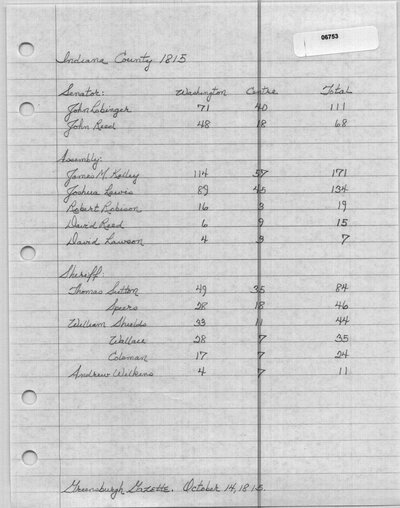 06753
Indiana County 1815
Senator: Washington Centre Total
John Lobinger 71 40 111
John Reed 48 18 68
Assembly:
James M. Kelley 114 57 171
Joshua Lewis 89 45 134
Robert Robison 16 3 19
David Reed 6 9 15
David Lawson 4 3 7
Sheriff:
Thomas Sutton 49 35 84
Speers 28 18 46
William Shields 33 11 44
Wallace 28 7 35
Coleman 17 7 24
Andrew Wilkins 4 7 11
Greensburgh Gazette. October 14, 1815.